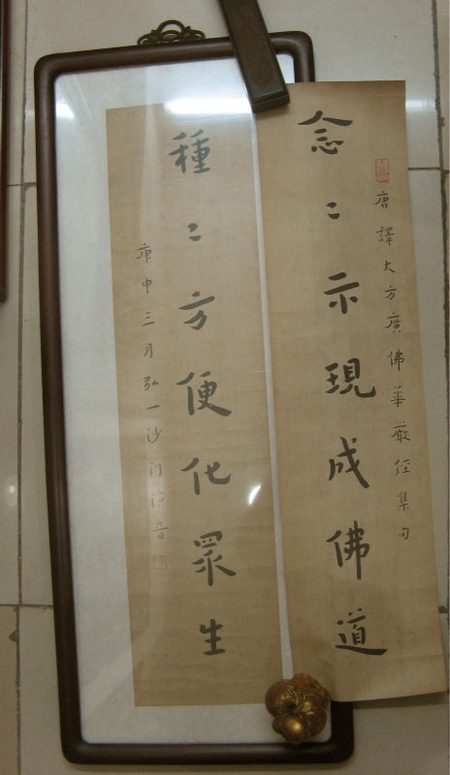 唐譯大方廣佛華嚴經集句
念〻示現成佛道
種〻方便化眾生
庚申三月弘一沙门演音